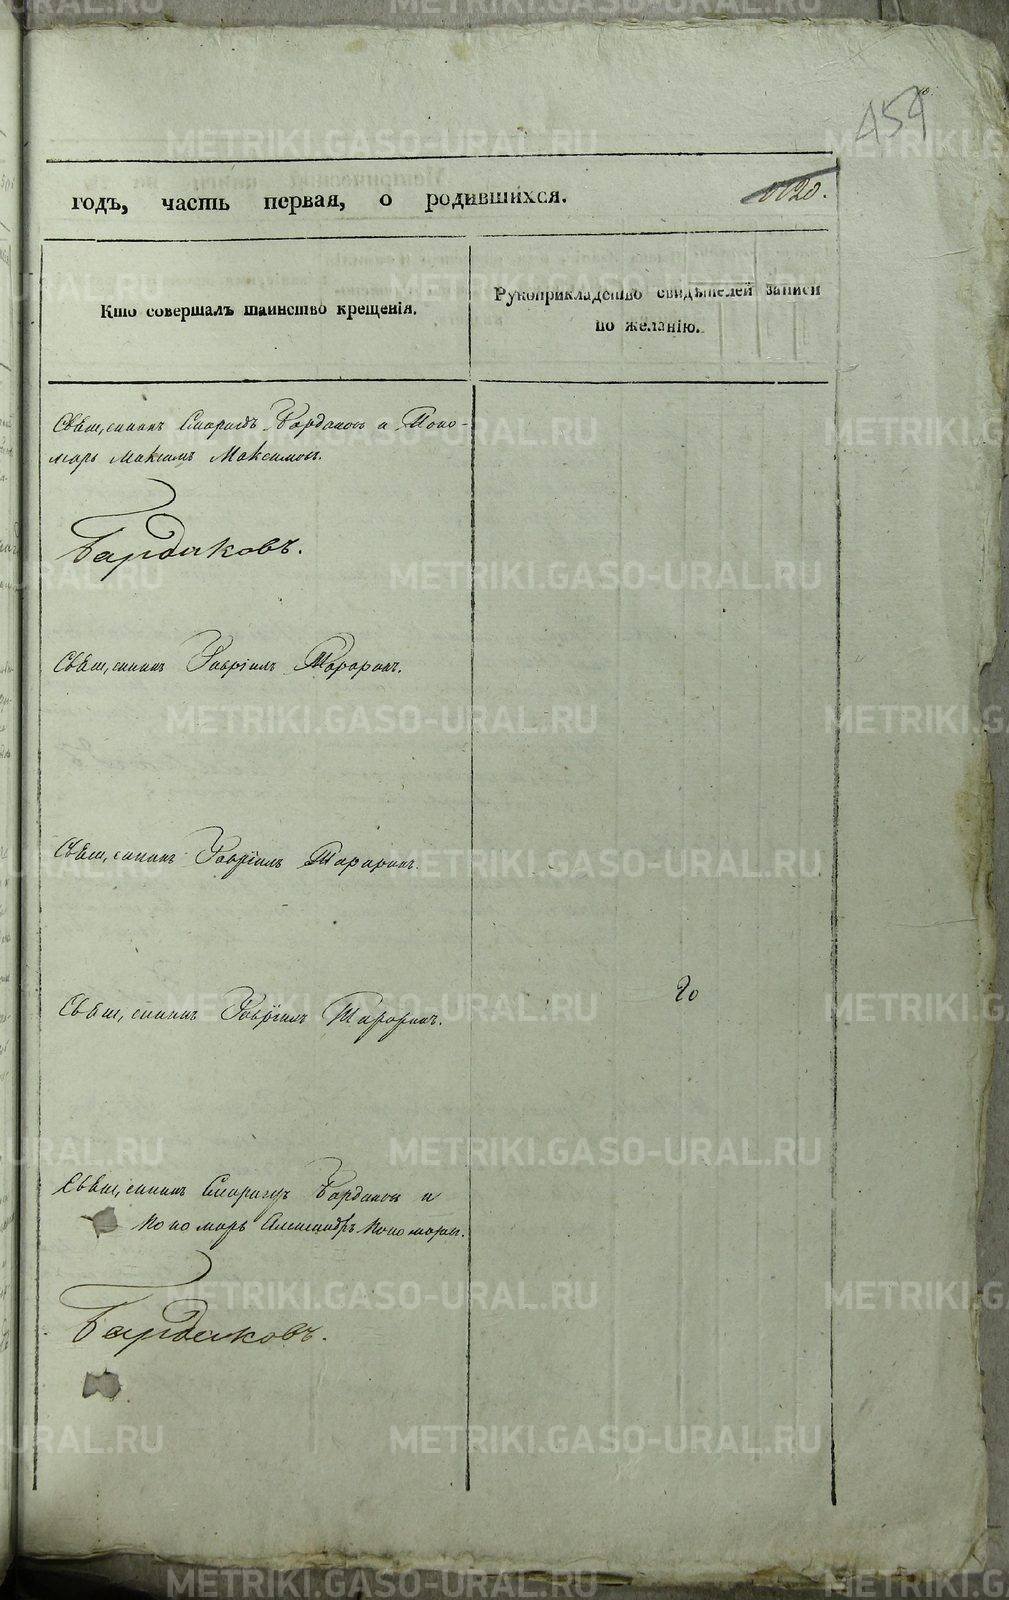 454
годъ, часть первая, о родившихся.
Кто совершалъ таинство крещенія.
Рукоприкладство свидѣтелей записи
по желанію.
Свящ,енникъ Бардаковъ и Поно-
марь Максимъ Максимовъ.
Бардаковъ.
Свящ,енникъ Гавріилъ
Свящ,енникъ Гавріилъ
Свящ,енникъ Гавріилъ
20
Свящ,енникъ Бардаковъ и
Пономарь Александръ Пономаревъ.
Бардаковъ.
METRIKI.GASO-URAL.RU